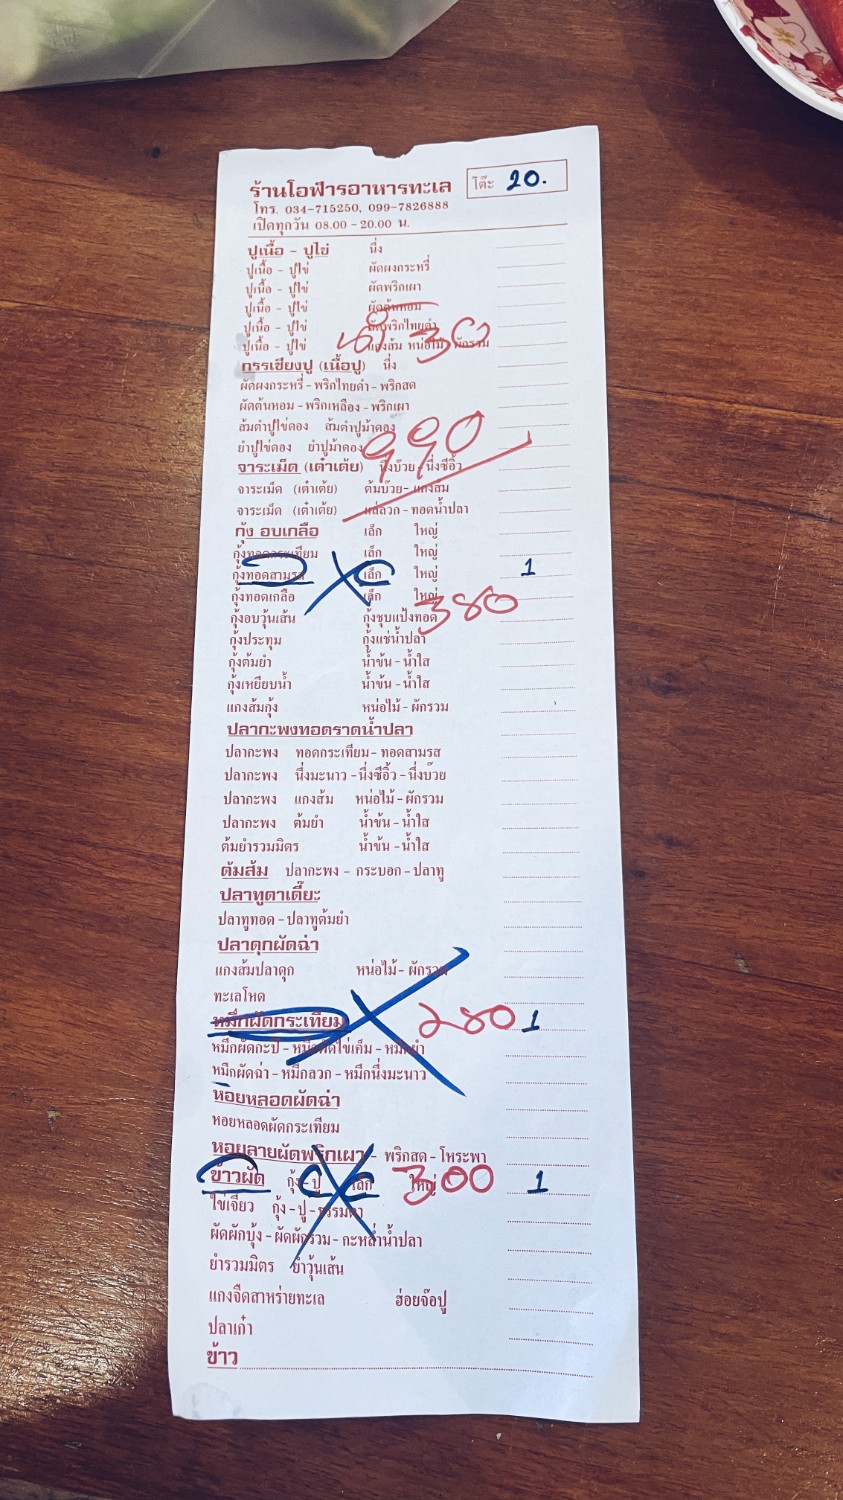 ร้านโอฟ้ารอาหารทะเล โต๊ะ 20.
โทร. 034-715250, 099-7826888
เปิดทุกวัน 08.00 - 20.00 น.
ปูเนื้อ - ปูไข่ นึ่ง
ปูเนื้อ - ปูไข่ ผัดผงกระหรี่
ปูเนื้อ - ปูไข่ ผัดพริกเผา
ปูเนื้อ - ปูไข่ ผัดต้นหอม
ปูเนื้อ - ปูไข่ ผัดพริกไทยดำ
ปูเนื้อ - ปูไข่ แกงส้ม หน่อไม้ - ผักรวม
น้ำ 30
กรรเชียงปู (เนื้อปู) นึ่ง
ผัดผงกระหรี่ - พริกไทยดำ - พริกสด
ผัดต้นหอม - พริกเหลือง - พริกเผา
ส้มตำปูไข่ดอง ส้มตำปูม้าดอง
ยำปูไข่ดอง ยำปูม้าดอง
990
จาระเม็ด (เต๋าเต้ย) นึ่งบ๊วย - นึ่งซีอิ้ว
จาระเม็ด (เต๋าเต้ย) ต้มบ๊วย - แกงส้ม
จาระเม็ด (เต๋าเต้ย) แล่ลวก - ทอดน้ำปลา
กุ้ง อบเกลือ เล็ก ใหญ่
กุ้งทอดกระเทียม เล็ก ใหญ่
กุ้งทอดสามรส เล็ก ใหญ่ 1
กุ้งทอดเกลือ เล็ก ใหญ่ 380
กุ้งอบวุ้นเส้น กุ้งชุบแป้งทอด
กุ้งประทุม กุ้งแช่น้ำปลา
กุ้งต้มยำ น้ำข้น - น้ำใส
กุ้งเหยียบน้ำ น้ำข้น - น้ำใส
แกงส้มกุ้ง หน่อไม้ - ผักรวม
ปลากะพงทอดราดน้ำปลา
ปลากะพง ทอดกระเทียม - ทอดสามรส
ปลากะพง นึ่งมะนาว - นึ่งซีอิ้ว - นึ่งบ๊วย
ปลากะพง แกงส้ม หน่อไม้ - ผักรวม
ปลากะพง ต้มยำ น้ำข้น - น้ำใส
ต้มยำรวมมิตร น้ำข้น - น้ำใส
ต้มส้ม ปลากะพง - กระบอก - ปลาทู
ปลาทูตาเตี๊ยะ
ปลาทูทอด - ปลาทูต้มยำ
ปลาดุกผัดฉ่า
แกงส้มปลาดุก หน่อไม้ - ผักรวม
ทะเลโหด
หมึกผัดกระเทียม 280 1
หมึกผัดกะปิ - หมึกผัดไข่เค็ม - หมึกยำ
หมึกผัดฉ่า - หมึกลวก - หมึกนึ่งมะนาว
หอยหลอดผัดฉ่า
หอยหลอดผัดกระเทียม
หอยลายผัดพริกเผา - พริกสด - โหระพา
ข้าวผัด กุ้ง - ปู เล็ก ใหญ่ 300 1
ไข่เจียว กุ้ง - ปู - ธรรมดา
ผัดผักบุ้ง - ผัดผักรวม - กะหล่ำน้ำปลา
ยำรวมมิตร ยำวุ้นเส้น
แกงจืดสาหร่ายทะเล ฮ่อยจ๊อปู
ปลาเก๋า
ข้าว